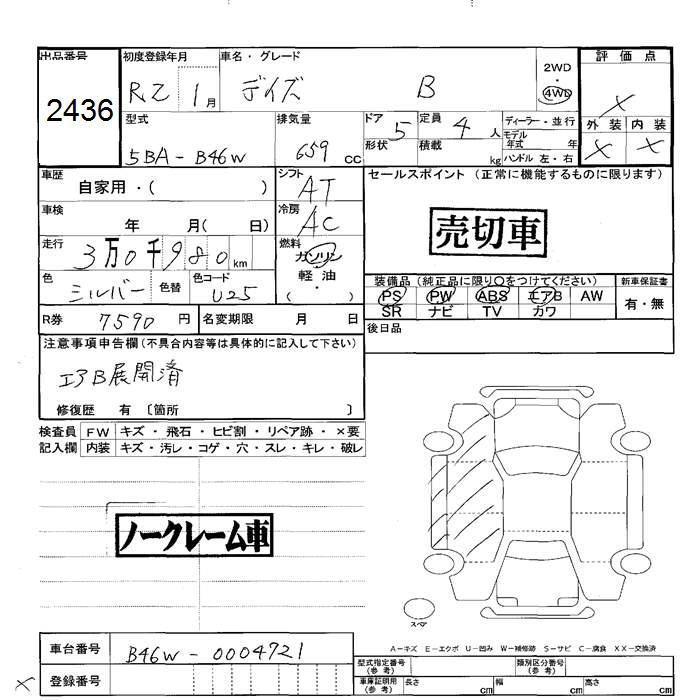 出品番号
2436
初度登録年月
R2 1月
車名・グレード
デイズ B
2WD
・
4WD
評価点
X
外装 内装
X X
型式
5BA-B46W
排気量
659 cc
ドア 5
形状
定員 4 人
積載 kg
ディーラー・並行
モデル年式 年
ハンドル 左・右
車歴
自家用・( )
シフト
AT
車検
年 月( 日)
冷房
AC
走行
3万0千980 km
燃料
ガソリン
軽・油
( ・ )
色
シルバー
色替
色コード
U25
R券 7590 円
名変期限 月 日
セールスポイント(正常に機能するものに限ります)
売切車
装備品(純正品に限り○をつけてください)
PS PW ABS エアB AW
SR ナビ TV カワ
新車保証書
有・無
後日品
注意事項申告欄(不具合内容等は具体的に記入して下さい)
エアB展開済
修復歴 有 〔箇所 〕
検査員記入欄
FW キズ・飛石・ヒビ割・リペア跡・×要
内装 キズ・汚レ・コゲ・穴・スレ・キレ・破レ
ノークレーム車
スペア
A−キズ E−エクボ U−凹み W−補修跡 S−サビ C−腐食 XX−交換済
車台番号 B46W-0004721
登録番号
X
型式指定番号(参考)
類別区分番号(参考)
車庫証明用(参考) 長さ cm 幅 cm 高さ cm